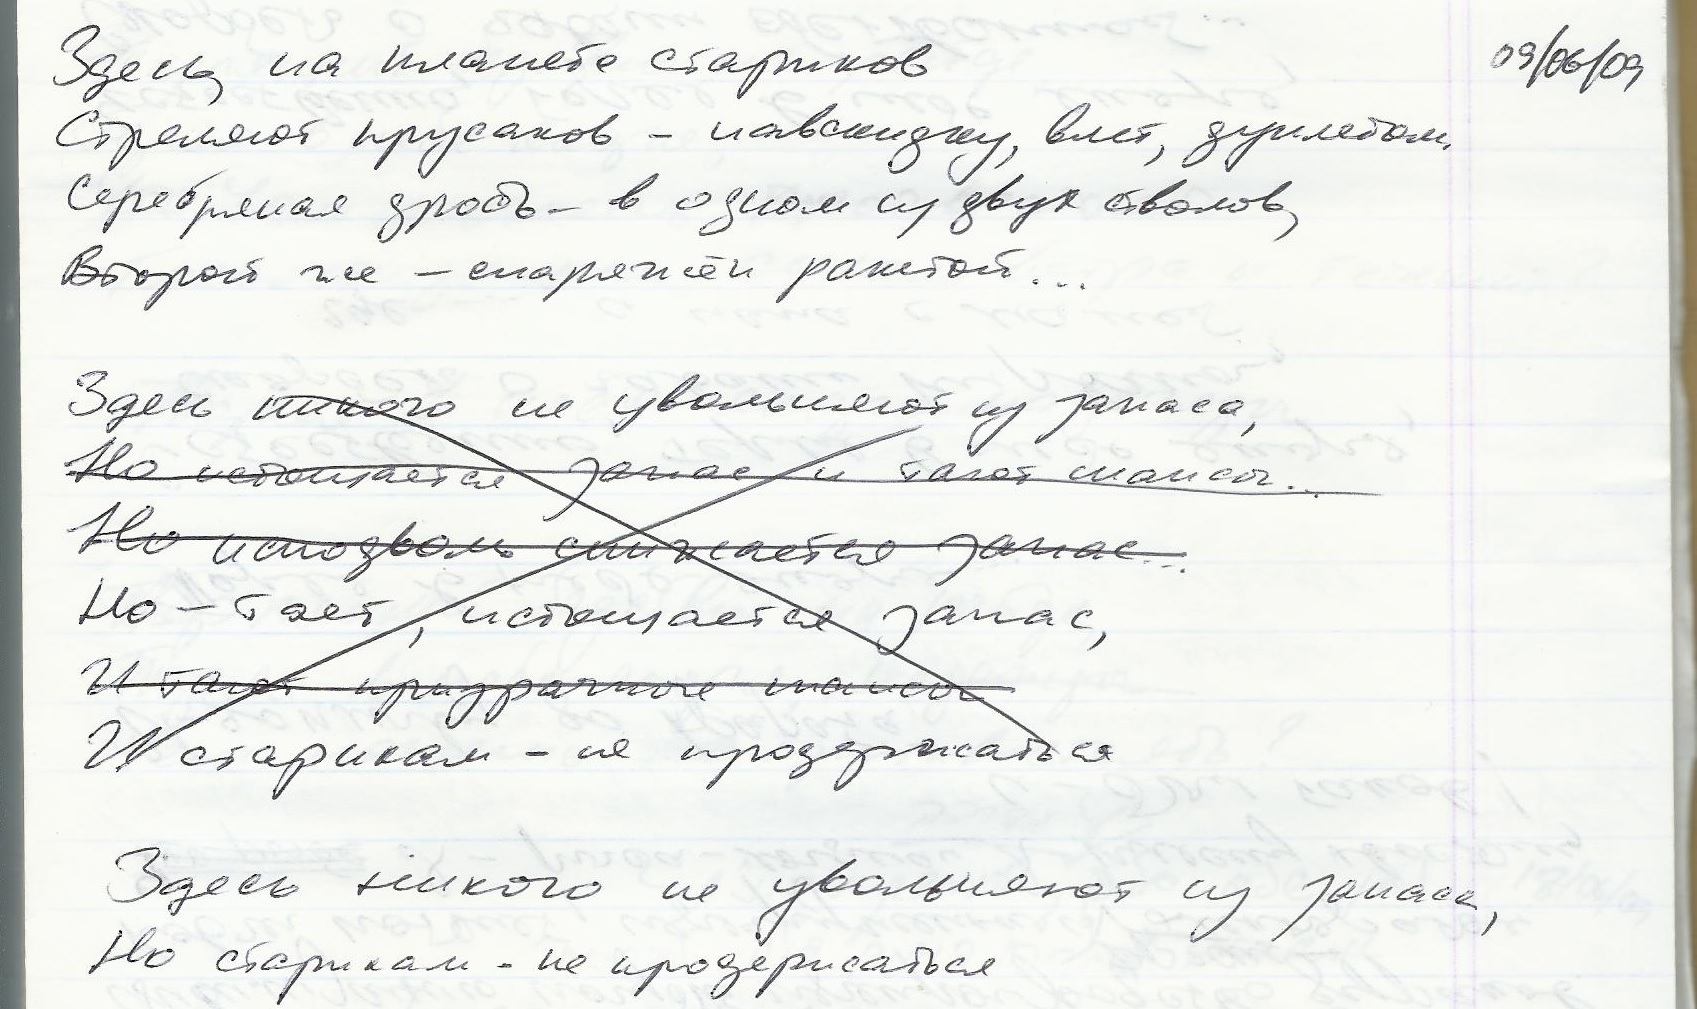 Здесь, на планете стариков
09/06/09
Стреляют прусаков – навскидку, влёт, дуплетом.
Серебряная дробь – в одном из двух стволов,
Второй же – снаряжён ракетой...
Здесь никого не увольняют из запаса,
Но истощается запас и тают шансы...
Но исподволь снижается запас...
Но – тает, истощается запас,
И тают призрачные шансы
И старикам – не продержаться
Здесь никого не увольняют из запаса,
Но старикам – не продержаться